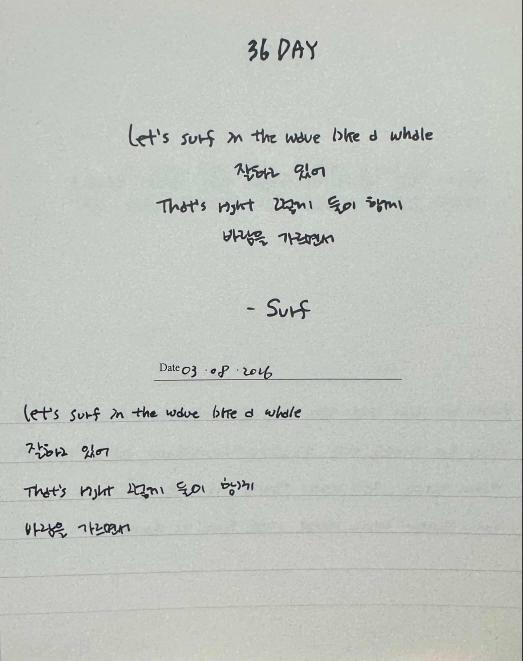 36 DAY
Let's surf in the wave like a whale
잘하고 있어
That's right 그렇지 둘이 함께
바람을 가르면서
- Surf
Date 03.08.2026
Let's surf in the wave like a whale
잘하고 있어
That's right 그렇지 둘이 함께
바람을 가르면서